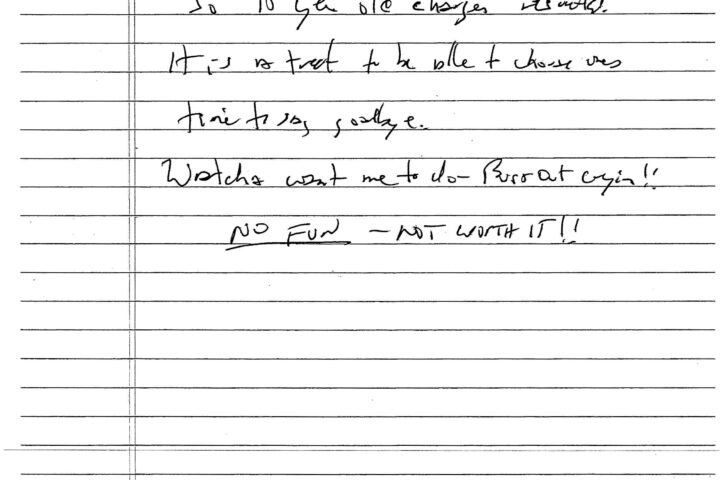 So 10 year old charges
It is a treat to be able to choose ones
time to say goodbye.
Watcha want me to do - Buss out cryin!!
NO FUN - NOT WORTH IT!!